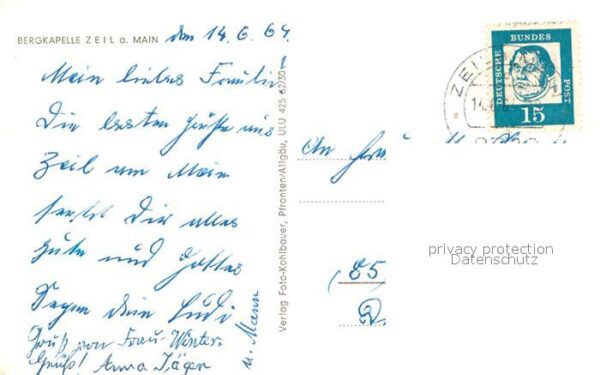 BERGKAPELLE ZEIL a. MAIN den 14.6.64.
Mein liebes
Die besten Grüße aus
Zeil am Main
sendet Dir alles
Gute und Gottes
Segen dein
Gruß von Frau Winter
Gruß! Anna Jäger
u. Mann
Verlag Foto-Kohlbauer, Pfronten/Allgäu, ULU 425 62/30
DEUTSCHE BUNDES POST
15
ZEIL
14.
An Frau
(85
privacy protection
Datenschutz